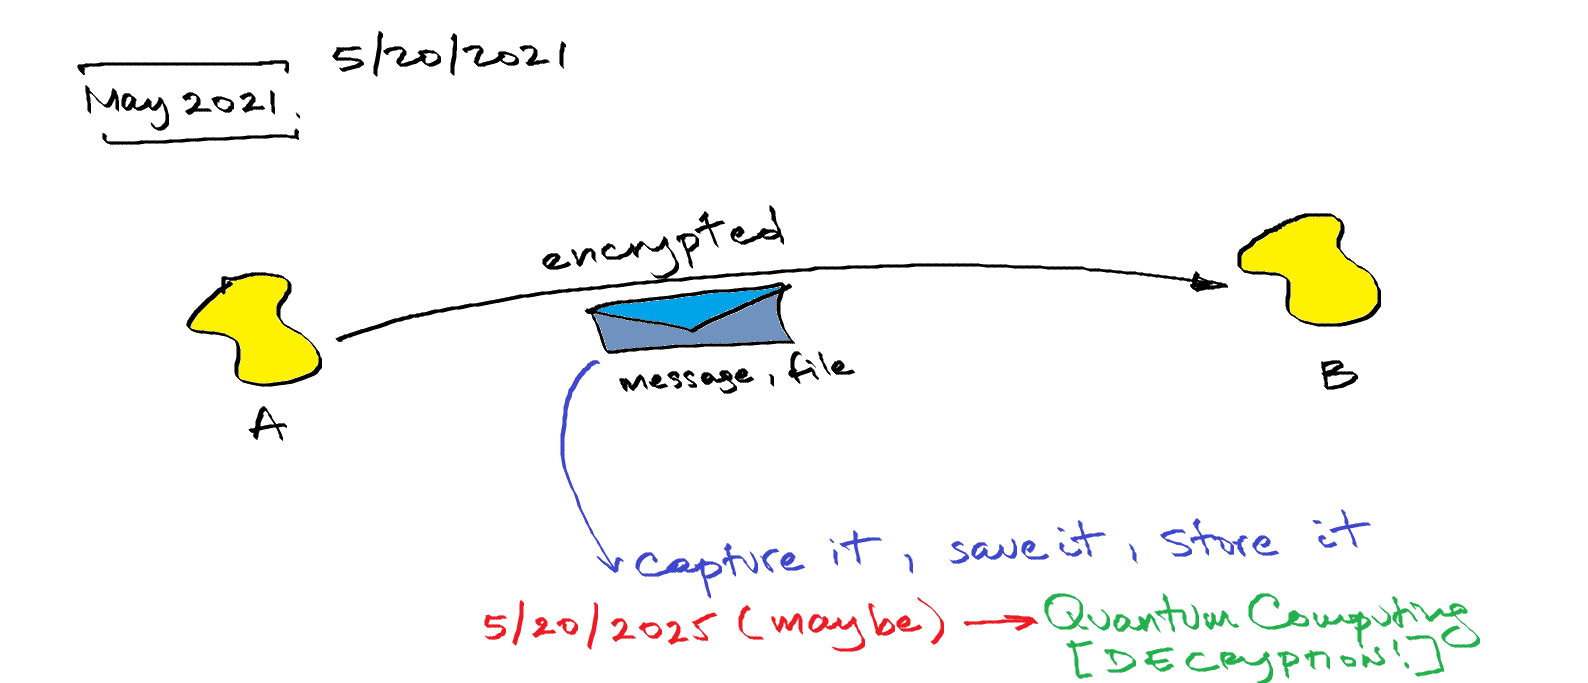 5/20/2021
May 2021.
encrypted
message, file
A
B
capture it, save it, store it
5/20/2025 (maybe) → Quantum Computing
[DECRYPTION!]